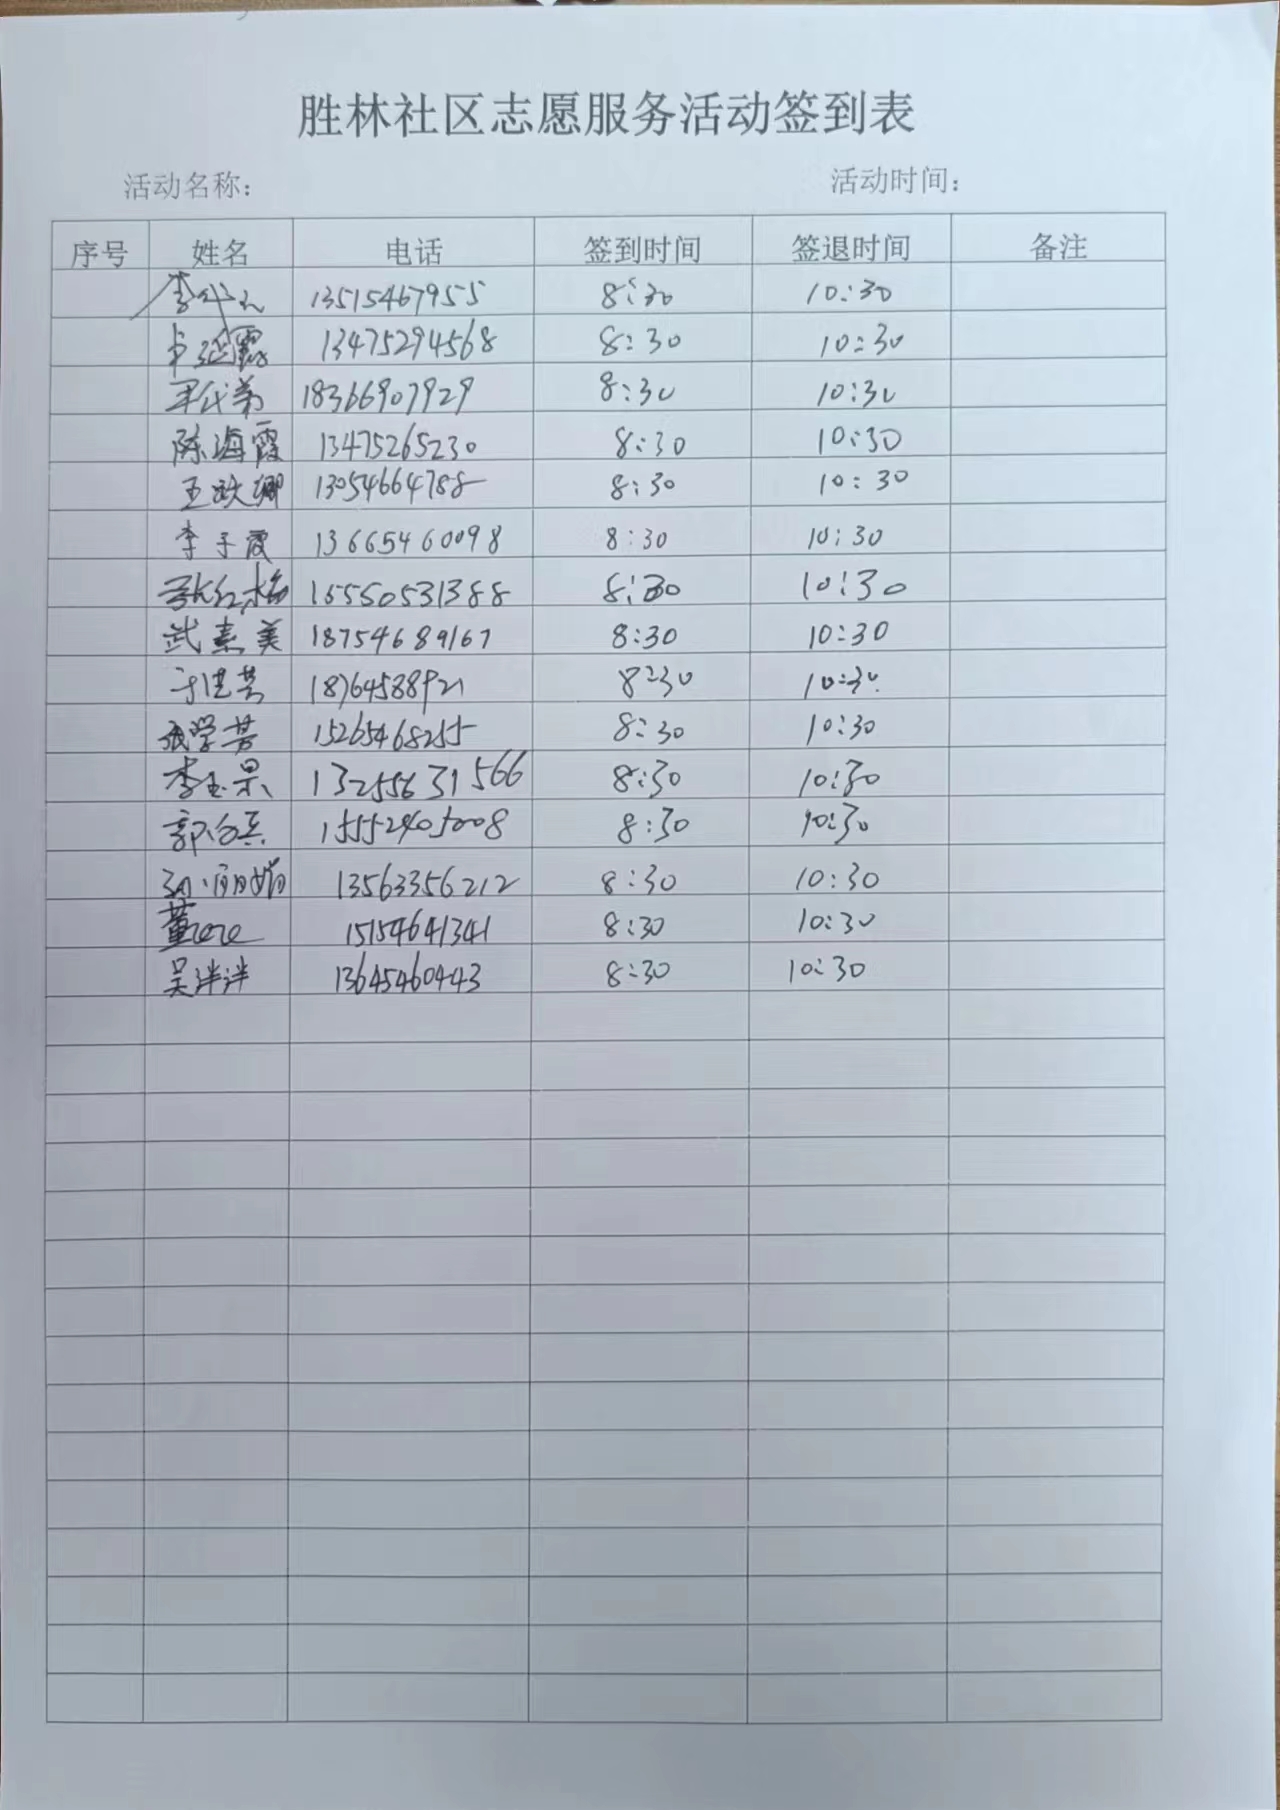 胜林社区志愿服务活动签到表
活动名称： 活动时间：
序号 姓名 电话 签到时间 签退时间 备注
13515467955 8:30 10:30
13475294568 8:30 10:30
18366907929 8:30 10:30
陈海霞 13475265230 8:30 10:30
王跃卿 13054664788 8:30 10:30
李子霞 13665460098 8:30 10:30
张红梅 15550531388 8:30 10:30
武素美 18754689167 8:30 10:30
18764588921 8:30 10:30
张学芳 15265468255 8:30 10:30
李玉杲 13255631566 8:30 10:30
15552405008 8:30 10:30
孙丽娟 13563356212 8:30 10:30
董 15154641341 8:30 10:30
吴泮泮 13645460443 8:30 10:30